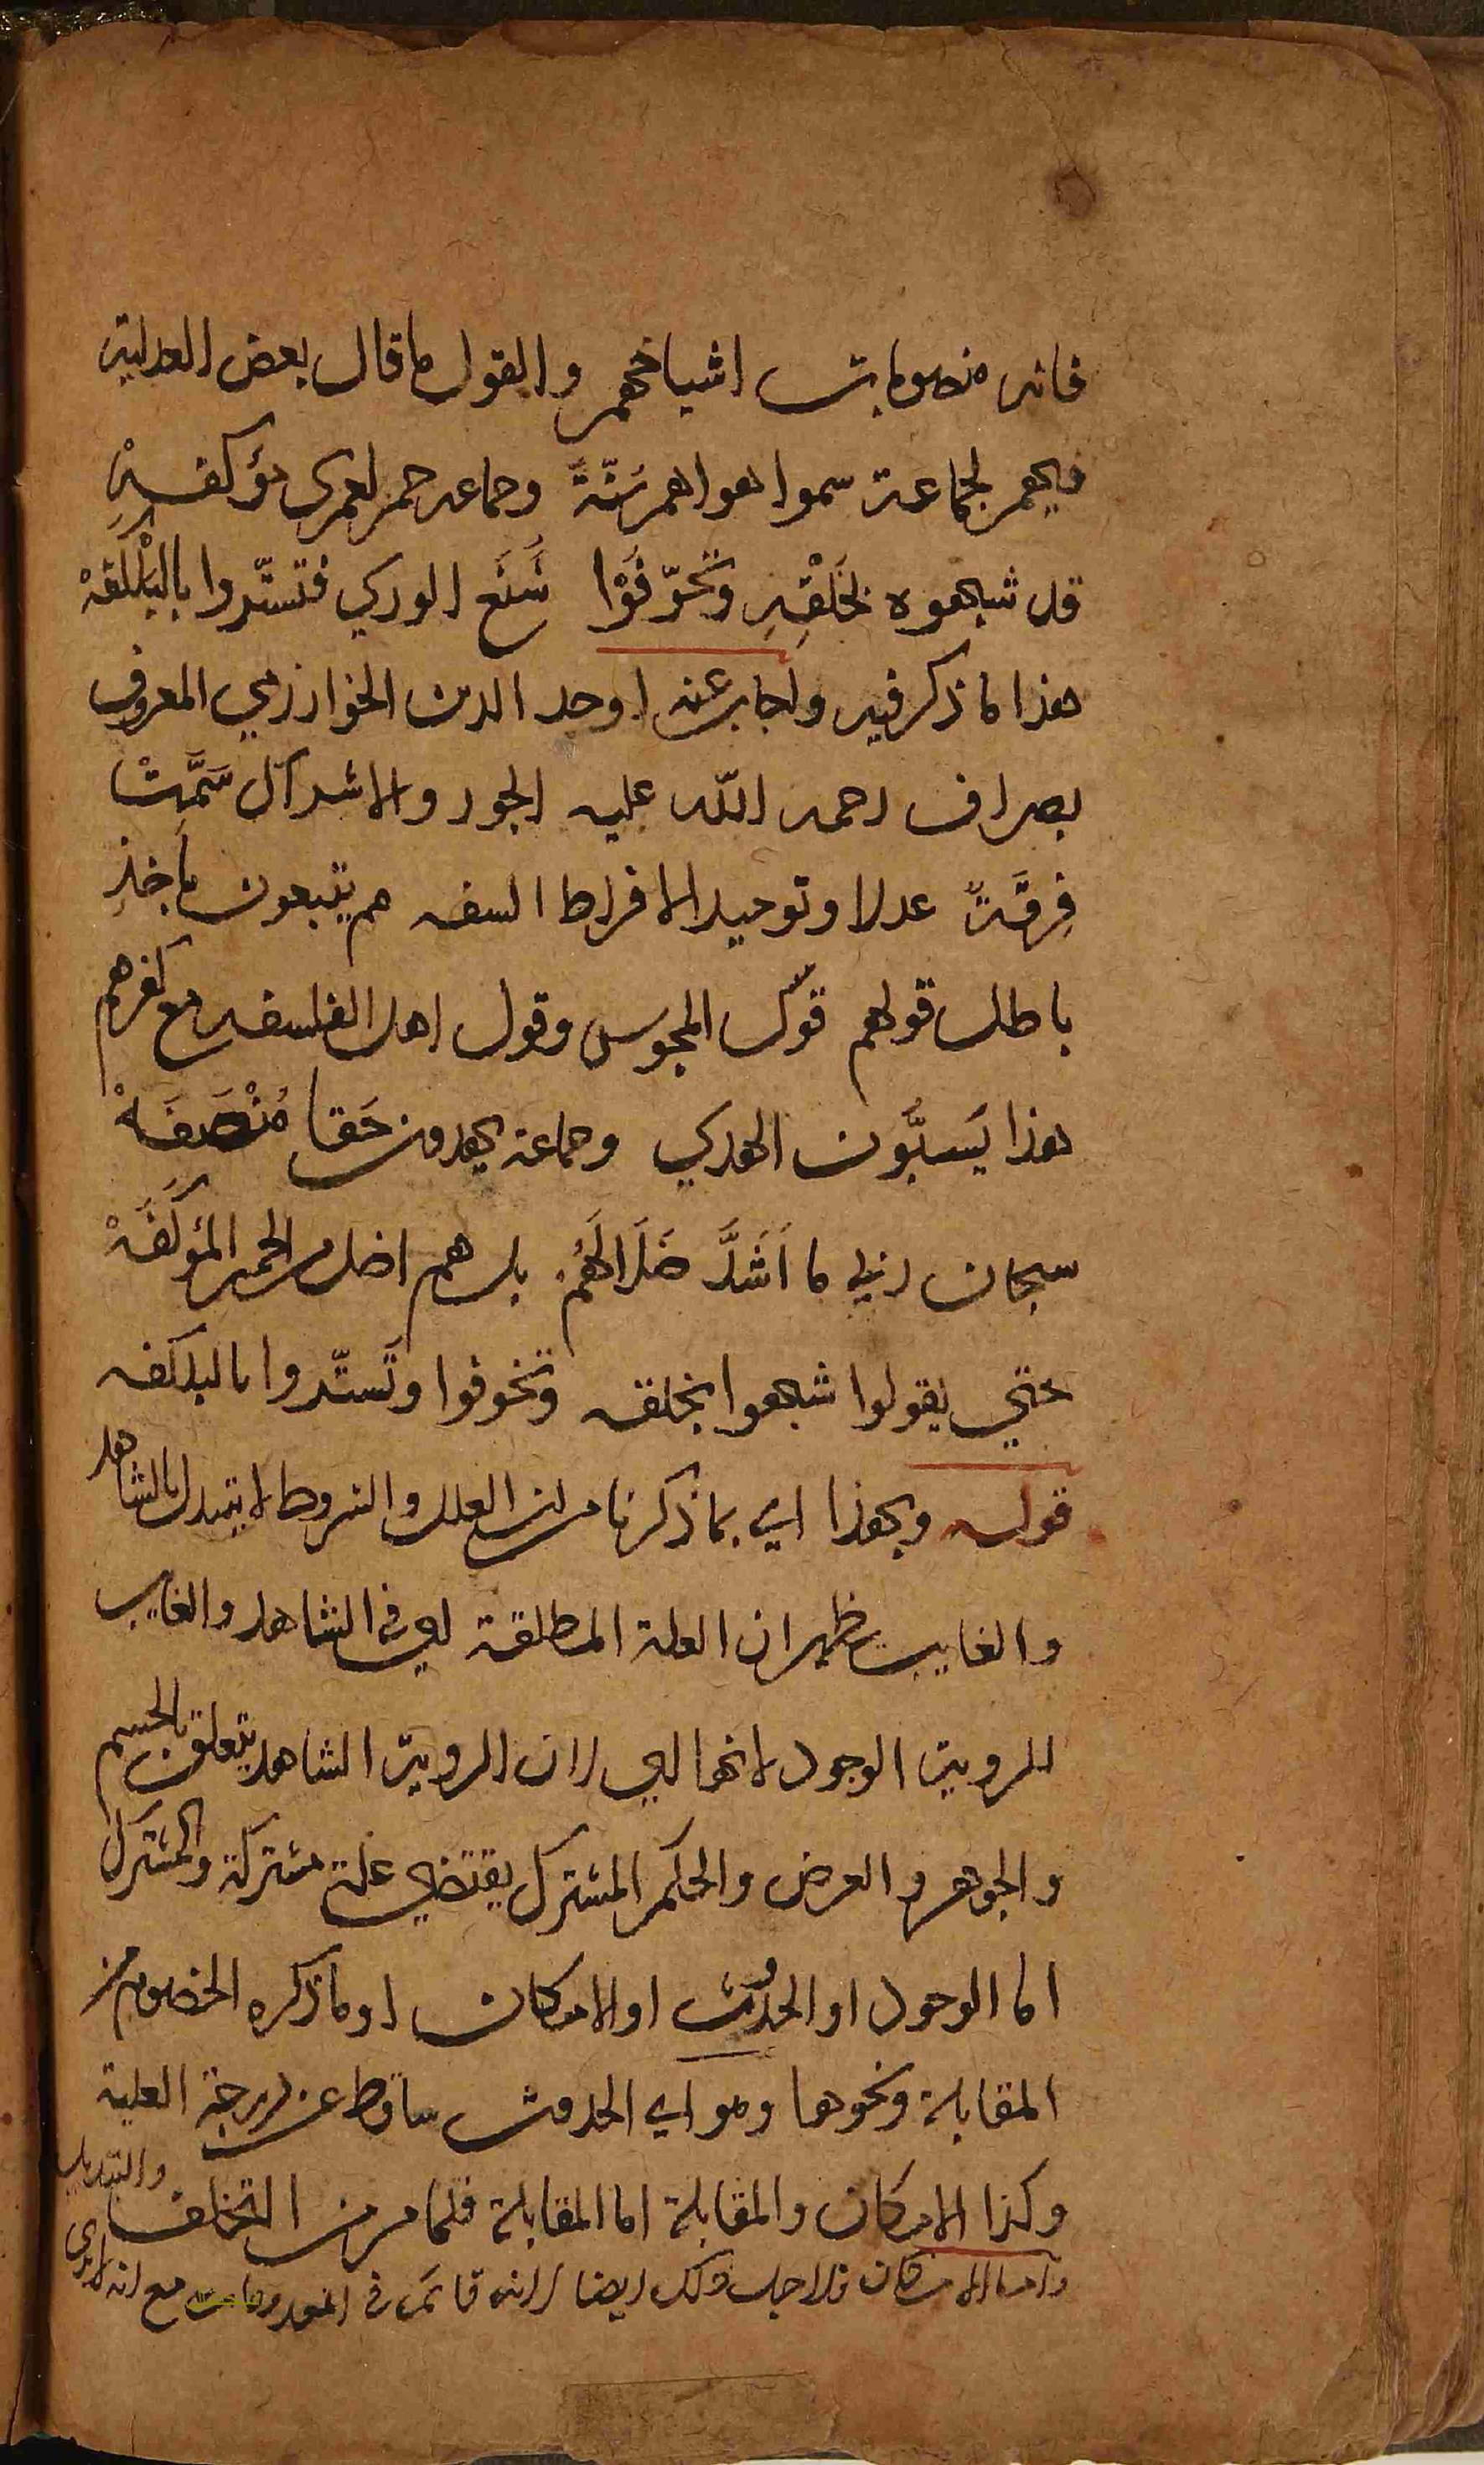 فانه منصوبات اشياخهم والقول ما قال بعض العدلية
فيهم لجماعة سموا هواهم سُنّةً وجماعه حمر لعمري مؤكفهْ
قد شبهوه بخَلْقِهِ وتخوّفَوْا شَنَعَ الورَي فتستّروا بالبَلْكفهْ
هذا ما ذكر فيه واجاب عنه اوحد الدين الخوارزمي المعروف
بصراف رحمه الله عليه الجور والاشراك سَمَّتْ
فِرقَةٌ عدلا وتوحيدا لافراط السفه هم يتبعون مآخذ
باطل قولهم قول المجوس وقول اهل الفلسفه مع كفرهم
هذا يَسبُّون الهدي وجماعة يهدون حَقا مُنْصَفَهْ
سبحان ربي ما اَشَدَّ ضَلَالَهُمْ بل هم اضل من الحمير المؤكَفَهْ
حتي يقولوا شبهوا بخلقه وتخوفوا وتَستّروا بالبلكفه
قوله وبهذا اي بما ذكرنا من ان العلل والشروط لا يتبدل بالشاهد
والغايب يظهر ان العلة المطلقة اي في الشاهد والغايب
للروية الوجود لانها اي لان الروية الشاهد يتعلق بالجسم
والجوهر والعرض والحكم المشترك يقتضي علة مشتركة والمشترك
اما الوجود او الحدوث او الامكان او ما ذكره الخصوم من
المقابلة ونحوها وهو اي الحدوث ساقط عن درجة العلية
وكذا الامكان والمقابلة اما المقابلة فلما مر من التخلف والتبديل
واما الامكان فلاجل ذلك ايضا لانه قائم في المعدومات مع انه لا يرى